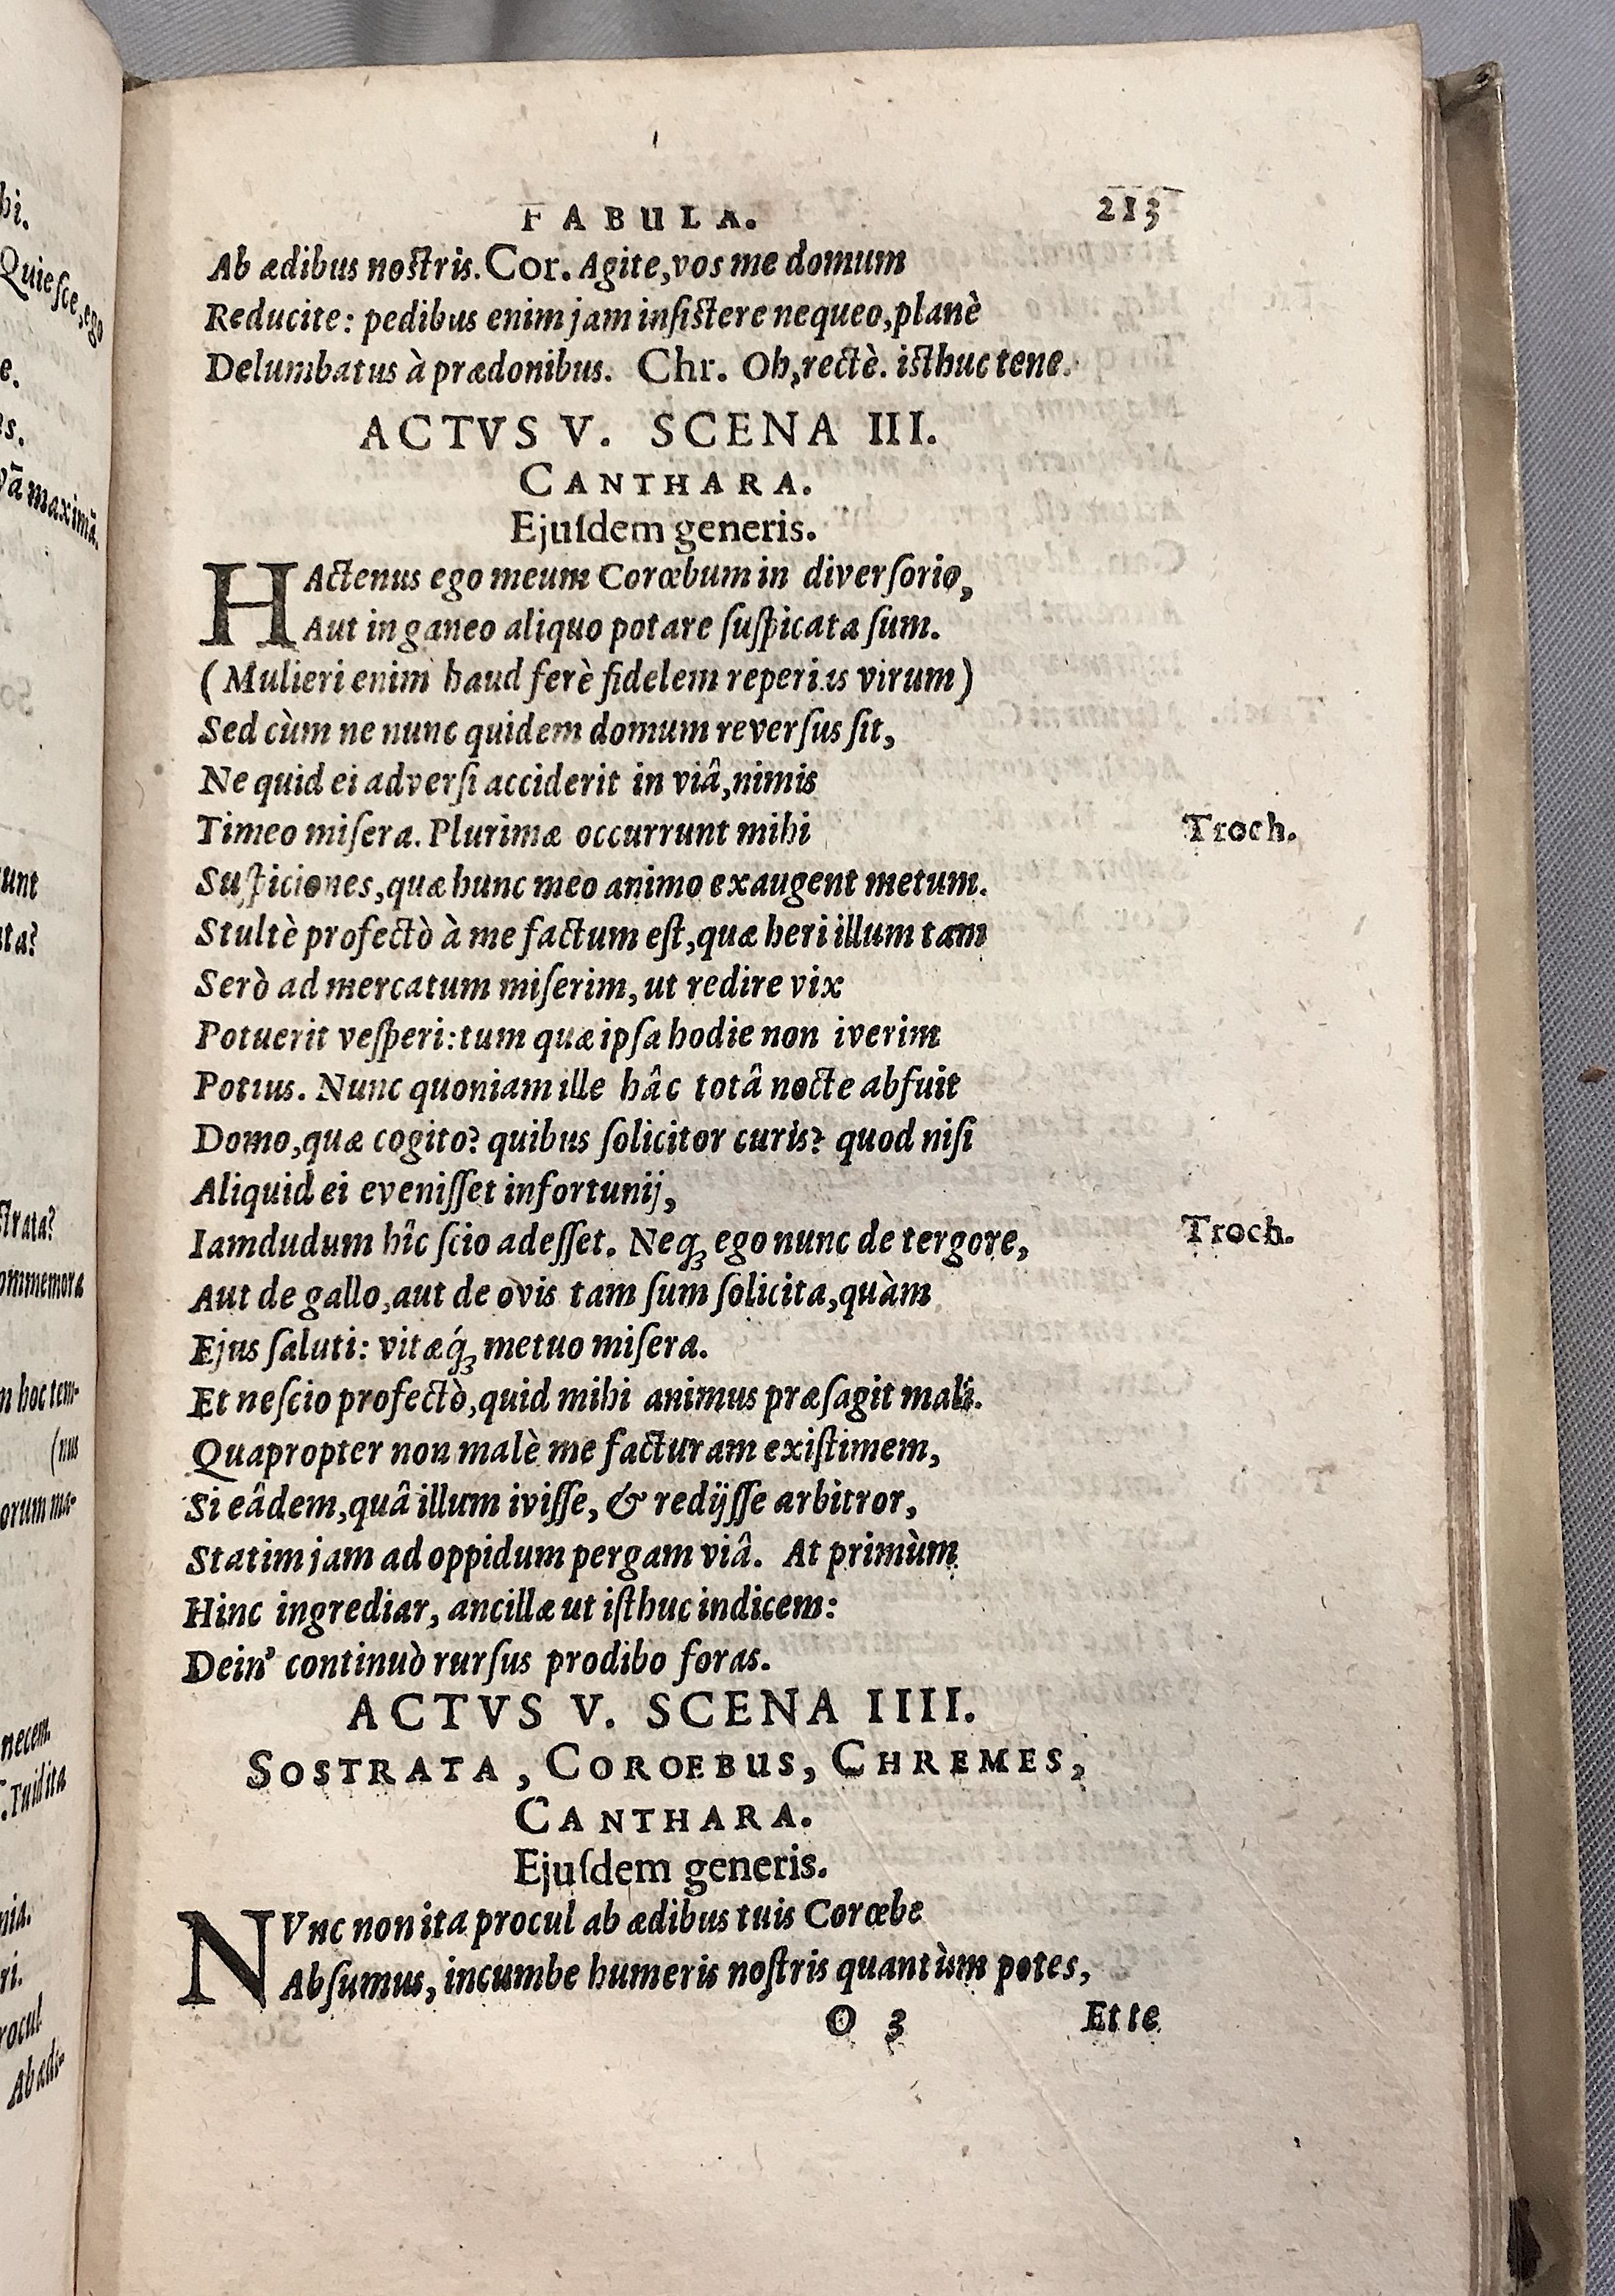 bi.
Quiesce, ego
e.
es.
vā maximā.
unt
ata?
strata?
ommemora
n hoc tem-
(nus
orum ma-
necem.
Tuidita
nia.
ri.
rocul
Ab ædi-
FABULA. 213
Ab ædibus nostris. Cor. Agite, vos me domum
Reducite: pedibus enim jam insistere nequeo, planè
Delumbatus à prædonibus. Chr. Oh, rectè. isthuc tene.
ACTVS V. SCENA III.
CANTHARA.
Ejuſdem generis.
HActenus ego meum Corœbum in diverſorio,
Aut in ganeo aliquo potare ſuſpicata ſum.
(Mulieri enim haud ferè fidelem reperias virum)
Sed cùm ne nunc quidem domum reverſus ſit,
Ne quid ei adverſi acciderit in viâ, nimis
Timeo miſera. Plurimæ occurrunt mihi Troch.
Suſpiciones, quæ hunc meo animo exaugent metum.
Stultè profectò à me factum eſt, quæ heri illum tam
Serò ad mercatum miſerim, ut redire vix
Potuerit veſperi: tum quæ ipſa hodie non iverim
Potius. Nunc quoniam ille hâc totâ nocte abfuit
Domo, quæ cogito? quibus ſolicitor curis? quod niſi
Aliquid ei eveniſſet infortunij,
Iamdudum hîc ſcio adeſſet. Neq; ego nunc de tergore, Troch.
Aut de gallo, aut de ovis tam ſum ſolicita, quàm
Ejus ſaluti: vitæq́; metuo miſera.
Et neſcio profectò, quid mihi animus præſagit mali.
Quapropter non malè me facturam exiſtimem,
Si eâdem, quâ illum iviſſe, & redijſſe arbitror,
Statim jam ad oppidum pergam viâ. At primùm
Hinc ingrediar, ancillæ ut iſthuc indicem:
Dein' continuò rurſus prodibo foras.
ACTVS V. SCENA IIII.
SOSTRATA, COROEBUS, CHREMES,
CANTHARA.
Ejuſdem generis.
NVnc non ita procul ab ædibus tuis Corœbe
Abſumus, incumbe humeris noſtris quantùm potes,
O 3 Et te